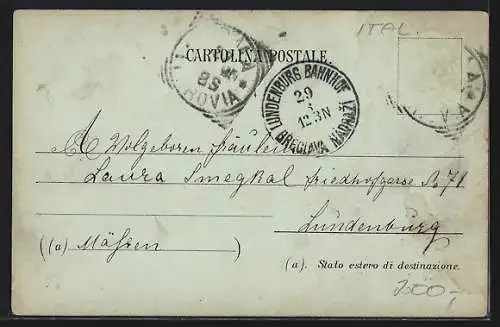 ITAL.
CARTOLINA POSTALE.
FERROVIA
98
LUNDENBURG BAHNHOF
29
12.3N
BRECLAVA NADRAZI
A Wolgeboren Fräulein
Laura Smegkal Friedhofgasse N. 71
Lundenburg
((a) Mähren )
(a). Stato estero di destinazione.
200,-